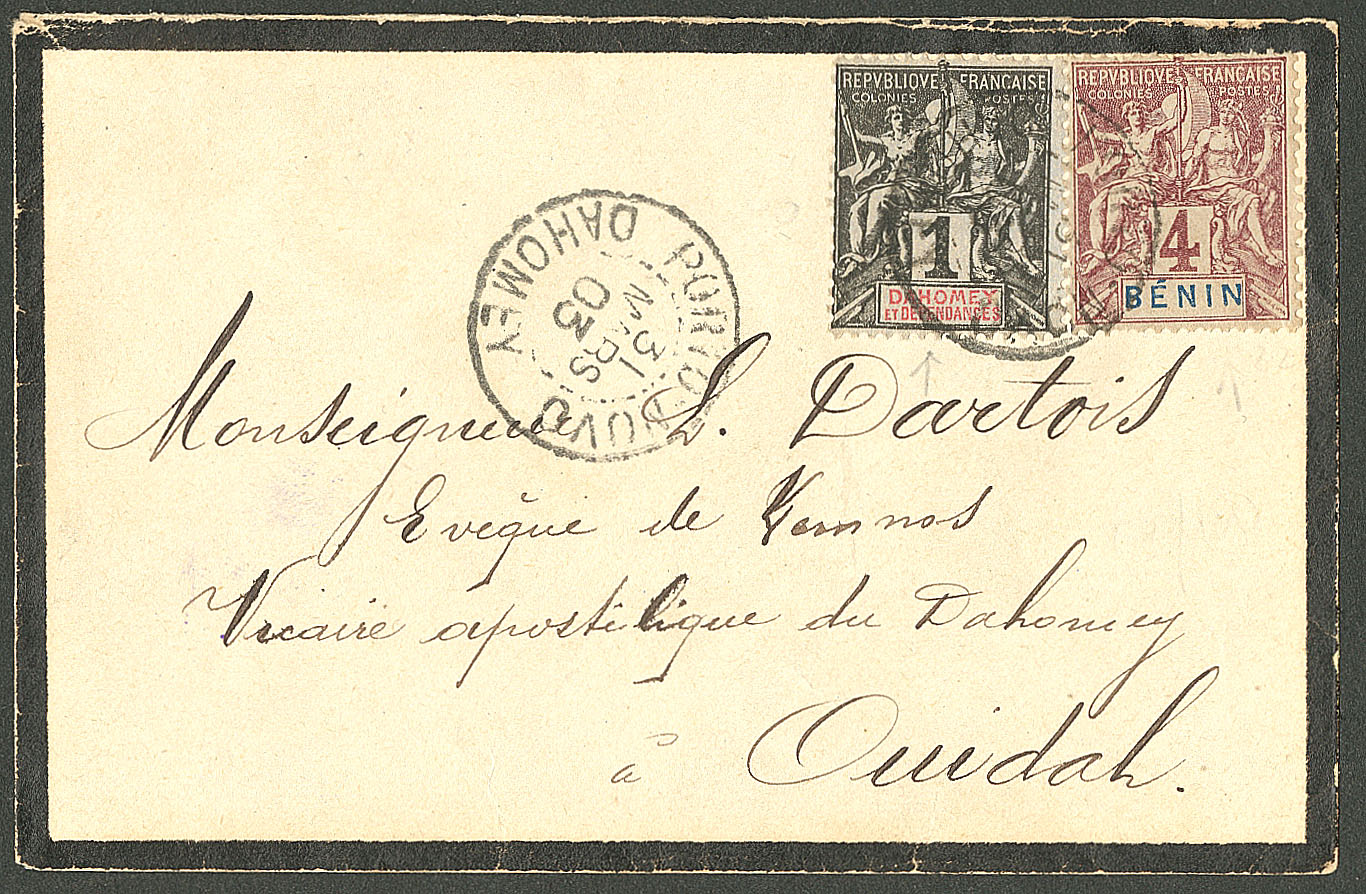 REPVBLIQVE FRANÇAISE
COLONIES POSTES
1
DAHOMEY
ET DÉPENDANCES
REPVBLIQVE FRANÇAISE
COLONIES POSTES
4
BÉNIN
PORTO-NOVO
31
MARS
03
DAHOMEY
Monseigneur L. Dartois
Evêque de
Vicaire apostolique du Dahomey
à Ouidah.